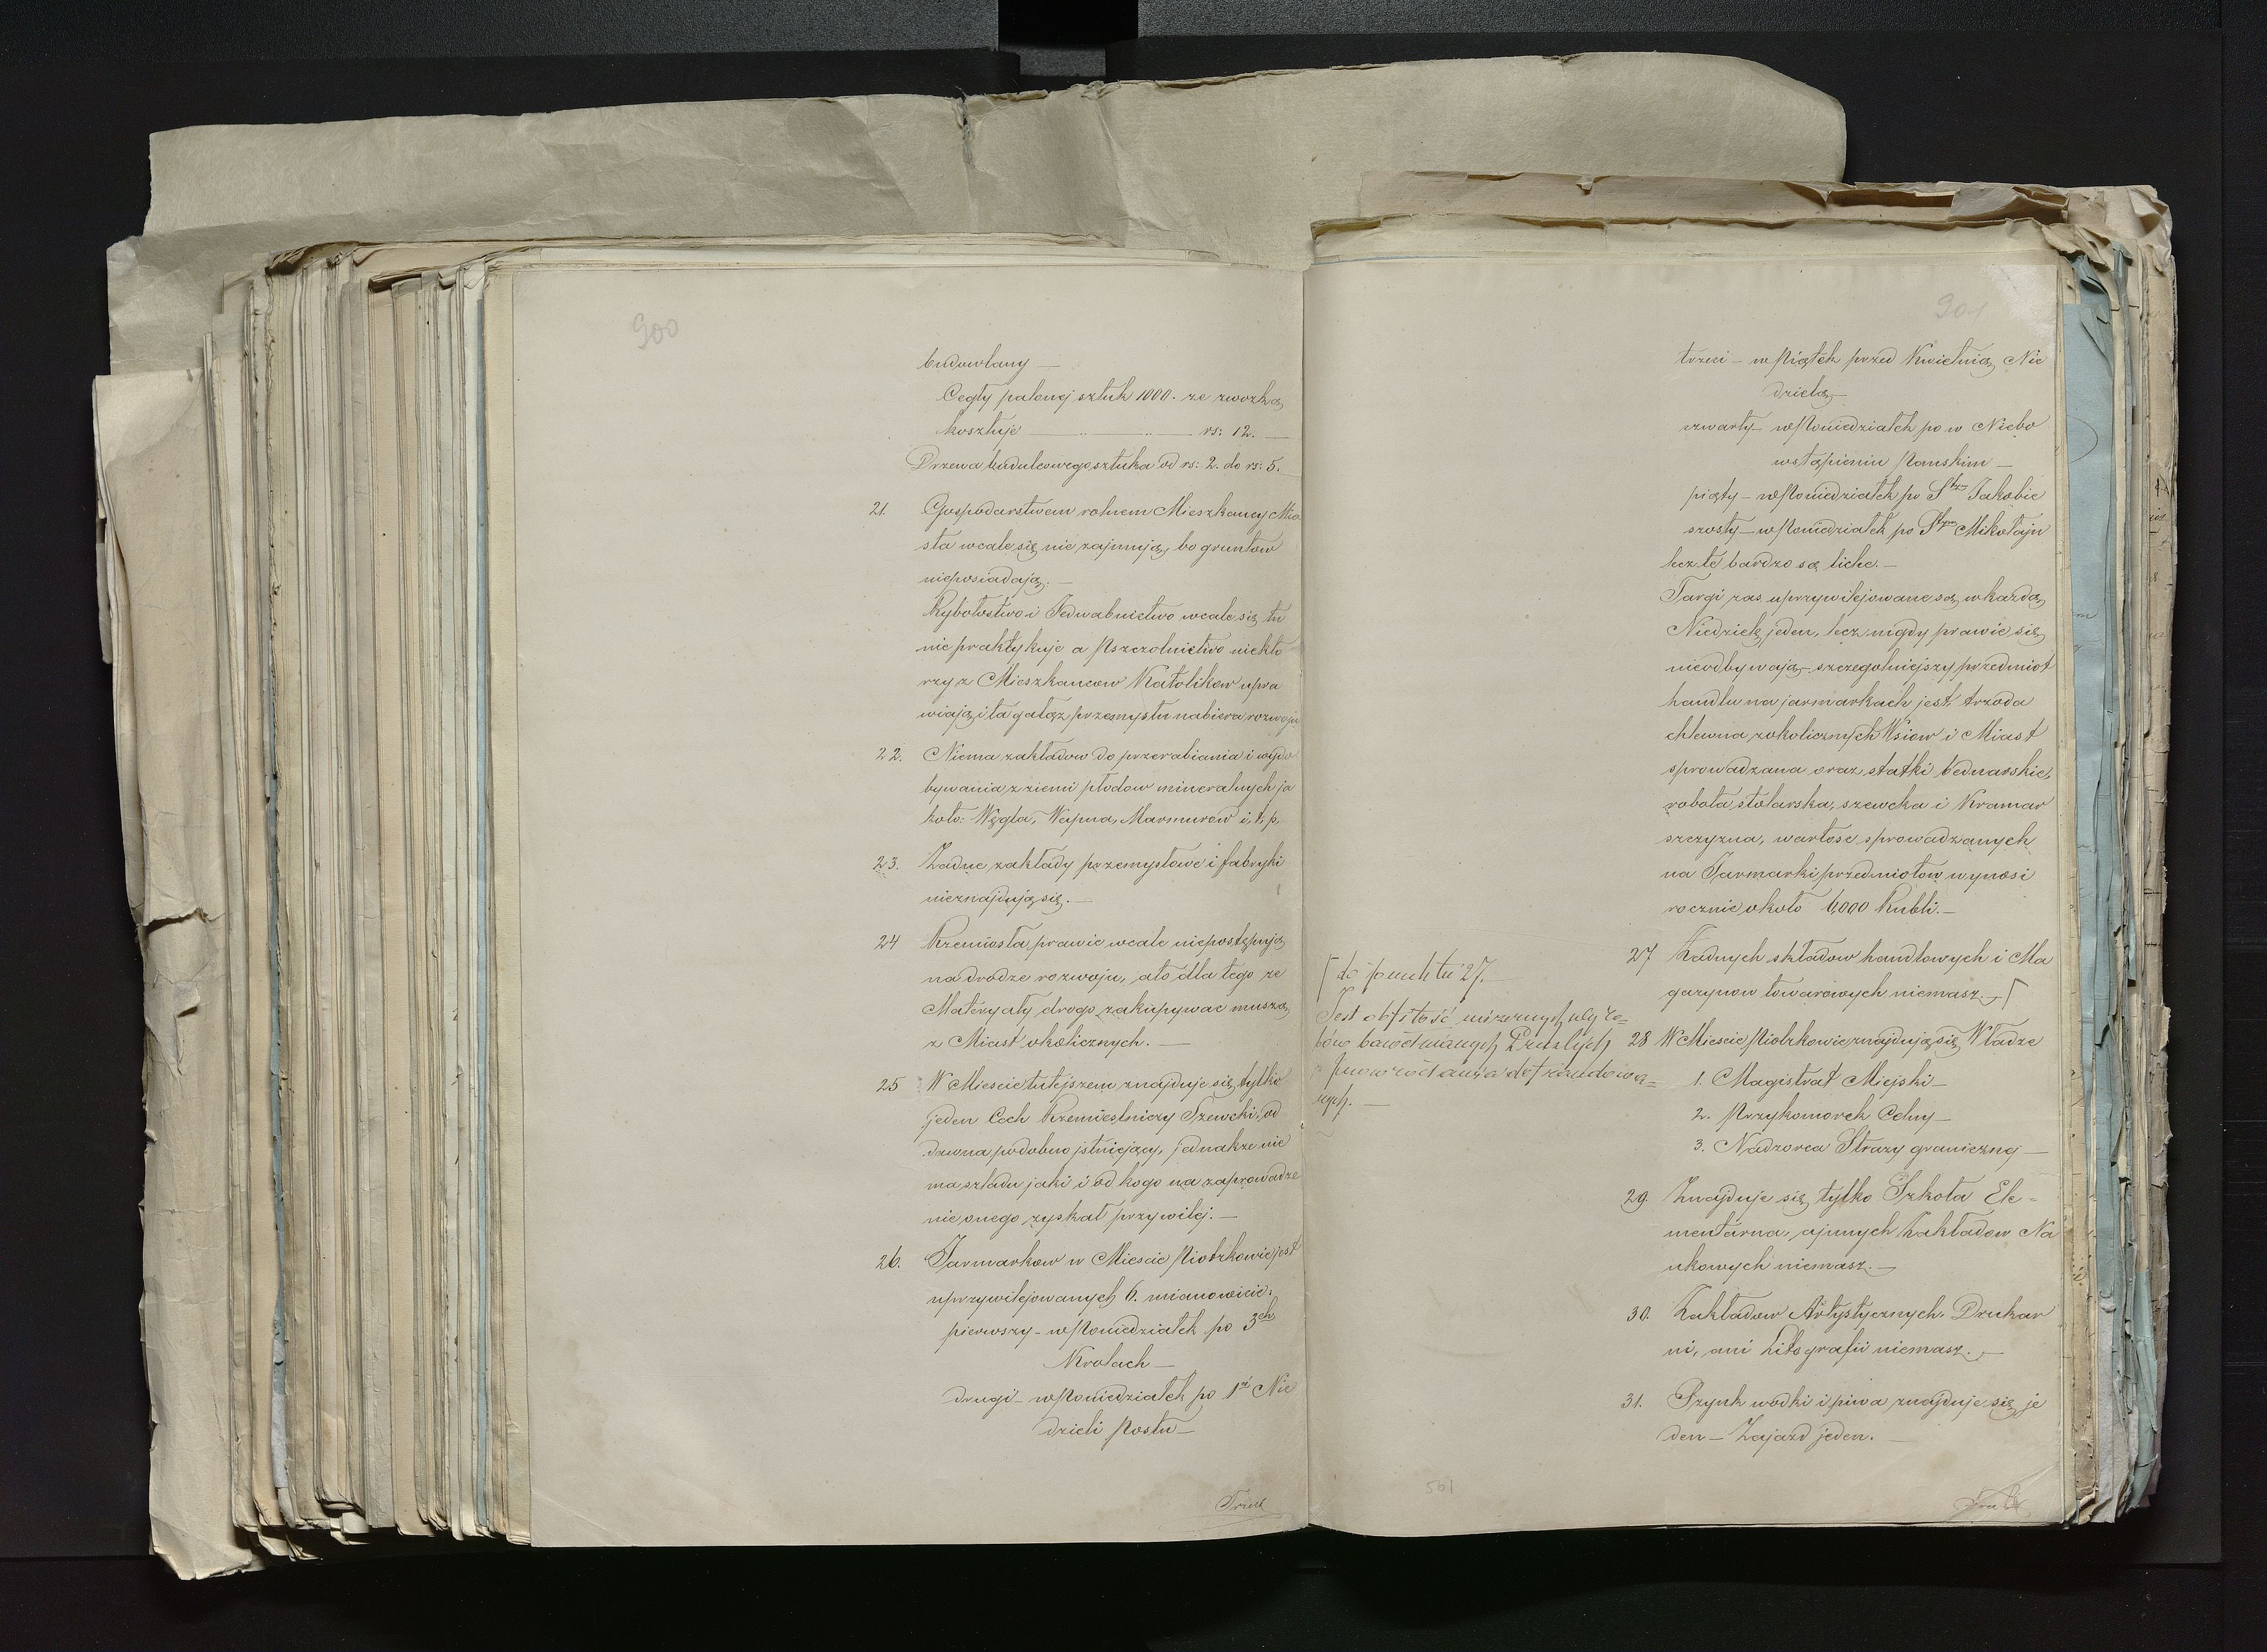 900
budowlany —
Cegły palonej sztuk 1000. ze zwozką
kosztuje — .. — .. — rs: 12. —
Drzewa budulcowego sztuka od rs: 2. do rs: 5.
21. Gospodarstwem rolnem Mieszkancy Mia
sta wcale się nie zajmują, bo gruntow
nieposiadają. —
Rybołostwo i Jedwabnictwo wcale się tu
nie praktykuje a Pszczolnictwo niekto
rzy z Mieszkancow Katolikow upra
wiają i ta gałąz przemysłu nabiera rozwoju
22. Niema zakładow do przerabiania i wydo
bywania z ziemi płodow mineralnych ja
koto: Węgla, Wapna, Marmurow i, t, p,
23. Żadne zakłady przemysłowe i fabryki
nieznajdują się. —
24 Rzemiosła prawie wcale niepostępują
na drodze rozwoju, a to dla tego ze
Materyały drogo zakupywac muszą
z Miast okolicznych. —
25 W Miescie tutejszem znajduje się tylko
jeden Cech Rzemieslniczy Szewcki, od
dawna podobno jstniejący, jednakze nie
ma szladu jaki i od kogo na zaprowadze
nie onego zyskał przywilej. —
26. Jarmarkow w Miescie Piotrkowie jest
uprzywilejowanych 6. mianowicie:
pierwszy — w Poniedziałek po 3ch
Krolach —
drugi — w Poniedziałek po 1éj Nie
dzieli Postu —
901
trzeci — w Piątek przed Kwietnią Nie
dzielą —
czwarty — w Poniedziałek po w Niebo
wstąpieniu Panskim —
piąty — w Poniedziałek po Stym Jakobie
szosty — w Poniedziałek po Stym Mikołaju
lecz te bardzo są liche. —
Targi zas uprzywilejowane są w każdą
Niedzielę jeden, lecz nigdy prawie się
nieodbywają — szczegolniejszy przedmiot
handlu na jarmarkach jest, trzoda
chlewna z okolicznych Wsiow i Miast
sprowadzana oraz statki bednarskie,
robota stolarska, szewcka i Kramar
szczyzna, wartosc sprowadzanych
na Jarmarki przedmiotow wynosi
rocznie około 6,000 Rubli. —
27 Żadnych składow handlowych i Ma
gazynow towarowych niemasz. —
do punktu 27.
Jest obfitość mizernych wyro=
bów bawełnianych Pruskich
28 W Miescie Piotrkowie znajdują się Władze
1. Magistrat Miejski —
2. Przykomorek Celny —
3. Nadzorca Strazy graniczny —
29. Znajduje się tylko Szkoła Ele=
mentarna, a jnnych Zakładow Na
ukowych niemasz. —
30. Zakładow Artystycznych, Drukar
ni, ani Litografii niemasz. —
31. Szynk wodki i piwa znajduje się je
den — Zajazd jeden. —
561